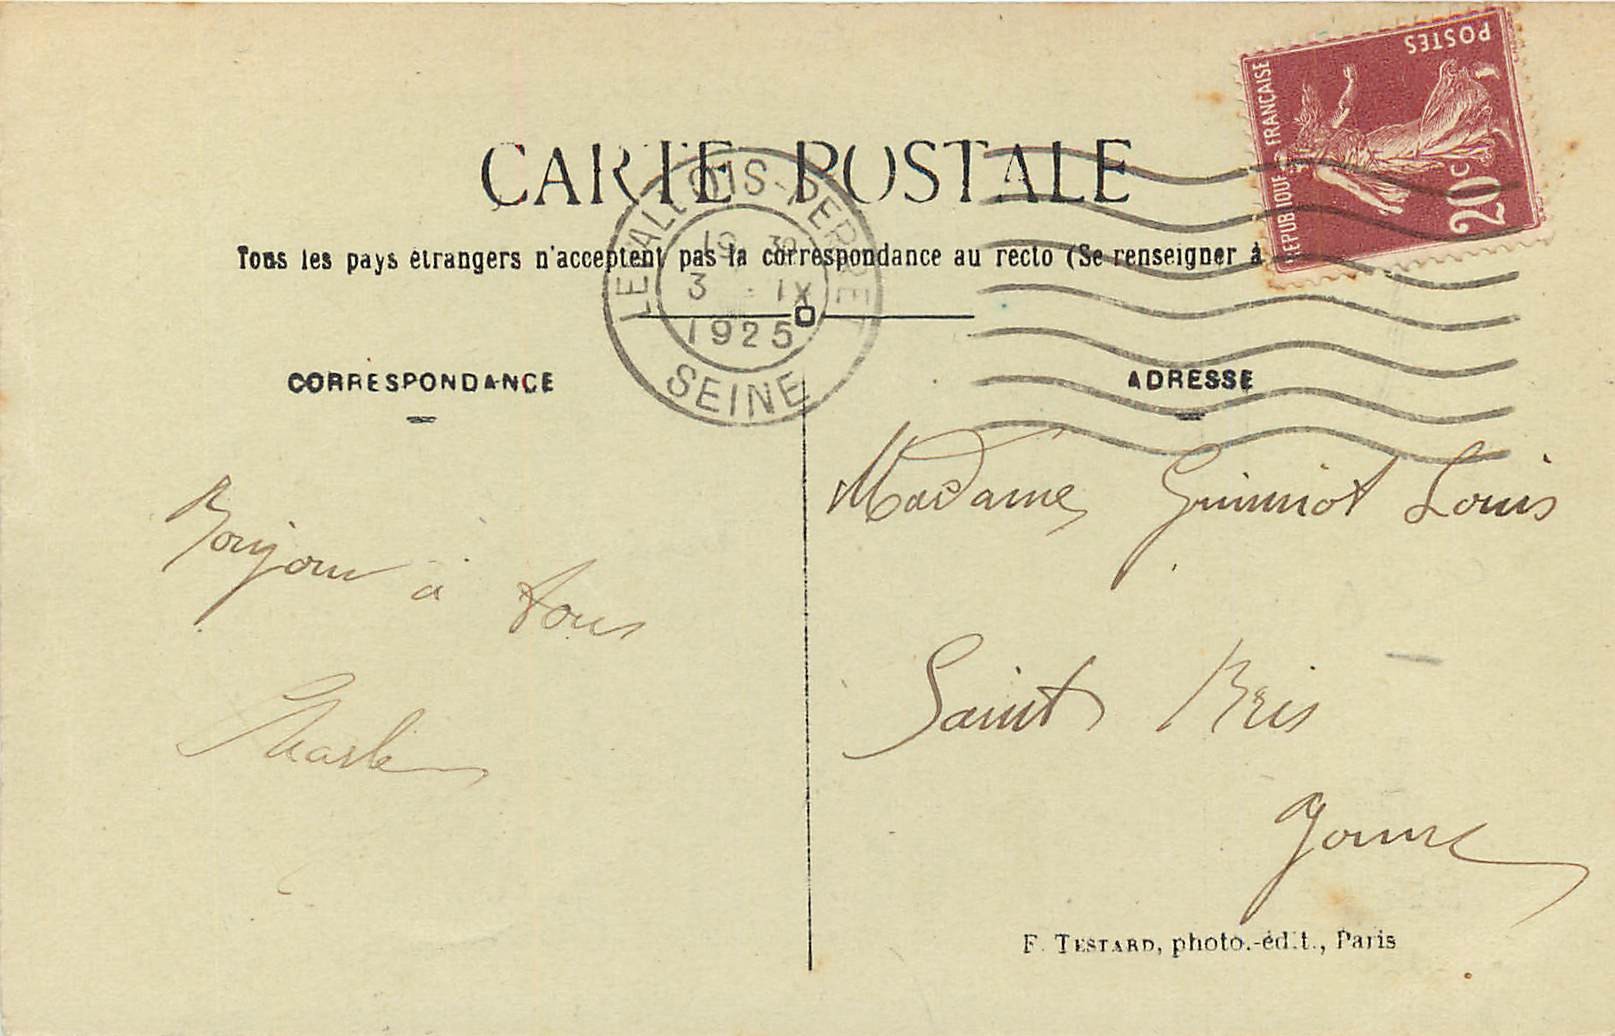 POSTES
REPUBLIQUE FRANÇAISE
20c
CARTE POSTALE
LEVALLOIS-PERRET
19 30
3 - IX
1925
SEINE
Tous les pays étrangers n'acceptent pas la correspondance au recto (Se renseigner à
CORRESPONDANCE
ADRESSE
Bonjour à tous
Charles
Madame Guinniot Louis
Saint Bris
Yonne
F. TESTARD, photo.-édit., Paris